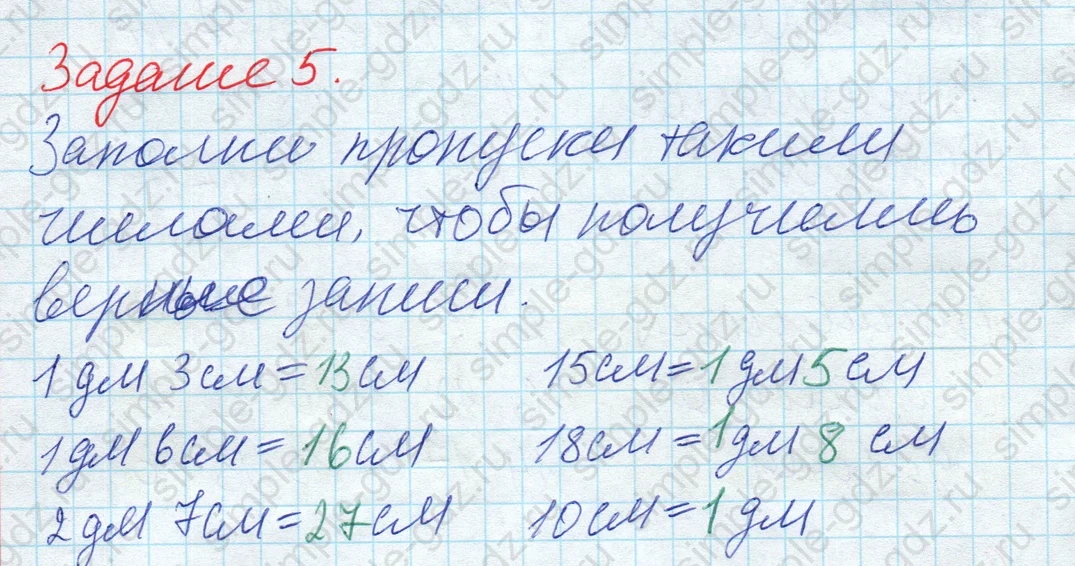 Задание 5.
Заполни пропуски такими
числами, чтобы получились
верные записи.
1 дм 3 см = 13 см 15 см = 1 дм 5 см
1 дм 6 см = 16 см 18 см = 1 дм 8 см
2 дм 7 см = 27 см 10 см = 1 дм
simple-gdz.ru